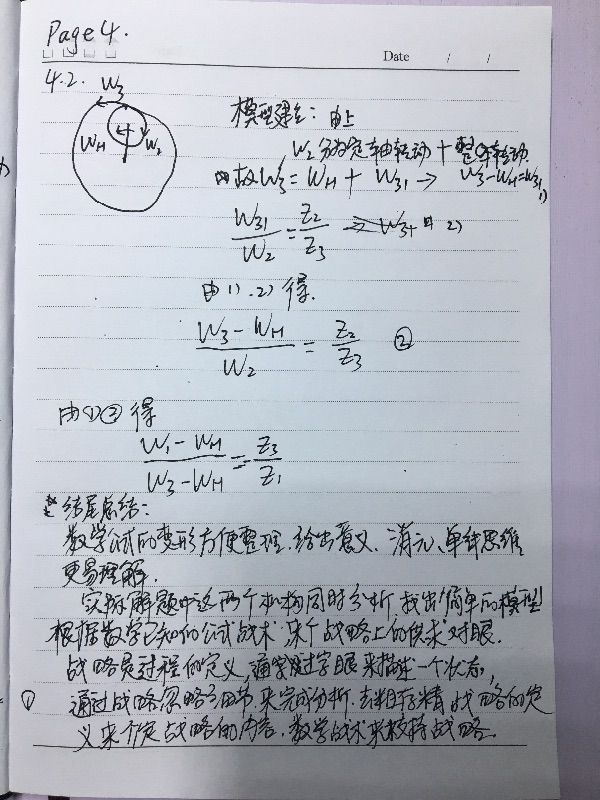 Page 4.
Date / /
4.2. W3
WH W2
模型建立: 由上
W2 分为定轴转动 + 整体转动
故 W3 = WH + W31 → W3 - WH = W31 1)
W31/W2 = Z2/Z3 2)
由 1) . 2) 得.
(W3 - WH)/W2 = Z2/Z3 ②
由①② 得
(W1 - WH)/(W3 - WH) = Z3/Z1
结尾总结:
数学公式的变形方便整理. 给出意义. 消元、单纯思维
更易理解.
实际解题中这两个机构同时分析. 找出简单的模型
根据数学已知的公式战术. 来个战略上的供求对眼.
战略是过程的定义, 通常通过字眼来描述一个状态,
① 通过战略忽略细节. 来完成分析. 去粗存精 战略的定
义来个定战略的内容. 数学战术来支持战略.